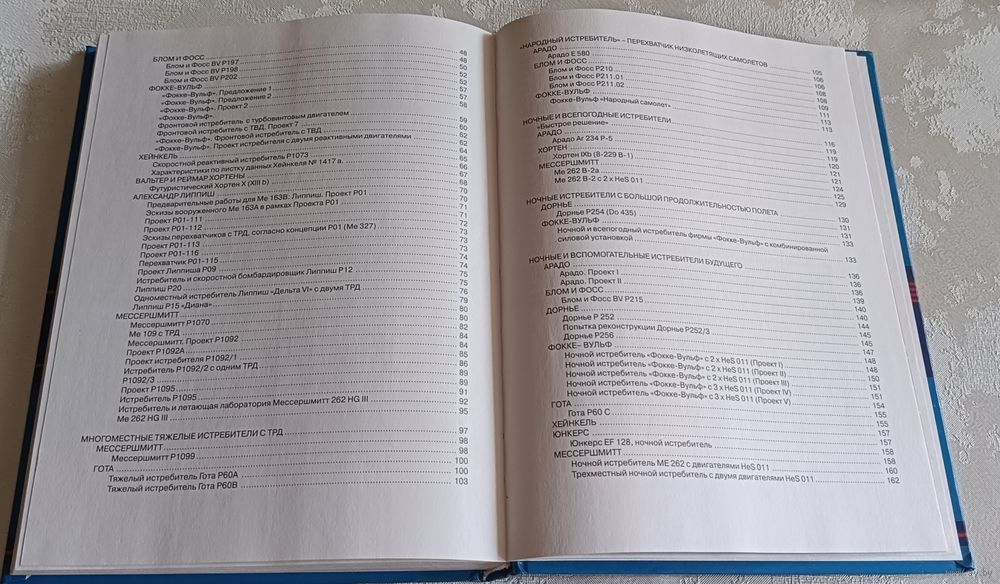 БЛОМ И ФОСС 48
Блом и Фосс BV P197
Блом и Фосс BV P198
Блом и Фосс BV P202
ФОККЕ-ВУЛЬФ
«Фокке-Вульф». Предложение 1
«Фокке-Вульф». Предложение 2
«Фокке-Вульф». Проект 2
Фронтовой истребитель с турбовинтовым двигателем
Фронтовой истребитель с ТВД. Проект 7
«Фокке-Вульф». Фронтовой истребитель с ТВД
«Фокке-Вульф». Проект истребителя с двумя реактивными двигателями
ХЕЙНКЕЛЬ
Скоростной реактивный истребитель P1073
Характеристики по листку данных Хейнкеля № 1417 а.
ВАЛЬТЕР И РЕЙМАР ХОРТЕНЫ
Футуристический Хортен X (XIII b)
АЛЕКСАНДР ЛИППИШ
Предварительные работы для Me 163B: Липпиш. Проект P01
Эскизы вооруженного Me 163A в рамках Проекта P01
Проект P01-111
Проект P01-112
Эскизы перехватчиков с ТРД, согласно концепции P01 (Me 327)
Проект P01-113
Проект P01-116
Перехватчик P01-115
Проект Липпиша P09
Истребитель и скоростной бомбардировщик Липпиш P12
Липпиш P20
Одноместный истребитель Липпиш «Дельта VI» с двумя ТРД
Липпиш P15 «Диана»
МЕССЕРШМИТТ
Мессершмитт P1070
Me 109 с ТРД
Мессершмитт. Проект P1092
Проект P1092A
Проект истребителя P1092/1
Истребитель P1092/2 с одним ТРД
P1092/3
Проект P1095
Истребитель P1095
Истребитель и летающая лаборатория Мессершмитт 262 HG III
Me 262 HG III 95
МНОГОМЕСТНЫЕ ТЯЖЕЛЫЕ ИСТРЕБИТЕЛИ С ТРД 97
МЕССЕРШМИТТ 98
Мессершмитт P1099 98
ГОТА 100
Тяжелый истребитель Гота P60A 100
Тяжелый истребитель Гота P60B 103
«НАРОДНЫЙ ИСТРЕБИТЕЛЬ» – ПЕРЕХВАТЧИК НИЗКОЛЕТЯЩИХ САМОЛЕТОВ 105
АРАДО
Арадо E 580
БЛОМ И ФОСС
Блом и Фосс P210
Блом и Фосс P211.01
Блом и Фосс P211.02
ФОККЕ-ВУЛЬФ
Фокке-Вульф «Народный самолет»
НОЧНЫЕ И ВСЕПОГОДНЫЕ ИСТРЕБИТЕЛИ
«Быстрое решение»
АРАДО
Арадо Ar 234 P-5
ХОРТЕН
Хортен IXb (8-229 B-1)
МЕССЕРШМИТТ
Me 262 B-2a
Me 262 B-2 с 2 x HeS 011
НОЧНЫЕ ИСТРЕБИТЕЛИ С БОЛЬШОЙ ПРОДОЛЖИТЕЛЬНОСТЬЮ ПОЛЕТА
ДОРНЬЕ
Дорнье P254 (Do 435)
ФОККЕ-ВУЛЬФ
Ночной и всепогодный истребитель фирмы «Фокке-Вульф» с комбинированной
силовой установкой 133
НОЧНЫЕ И ВСПОМОГАТЕЛЬНЫЕ ИСТРЕБИТЕЛИ БУДУЩЕГО
АРАДО
Арадо. Проект I
Арадо. Проект II
БЛОМ И ФОСС
Блом и Фосс BV P215
ДОРНЬЕ
Дорнье P 252
Попытка реконструкции Дорнье P252/3
Дорнье P256
ФОККЕ– ВУЛЬФ
Ночной истребитель «Фокке-Вульф» с 2 x HeS 011 (Проект I)
Ночной истребитель «Фокке-Вульф» с 2 x HeS 011 (Проект II)
Ночной истребитель «Фокке-Вульф» с 2 x HeS 011 (Проект III)
Ночной истребитель «Фокке-Вульф» с 3 x HeS 011 (Проект IV)
Ночной истребитель «Фокке-Вульф» с 3 x HeS 011 (Проект V)
ГОТА
Гота P60 C
ХЕЙНКЕЛЬ
ЮНКЕРС
Юнкерс EF 128, ночной истребитель
МЕССЕРШМИТТ
Ночной истребитель ME 262 с двигателями HeS 011 160
Трехместный ночной истребитель с двумя двигателями HeS 011 162